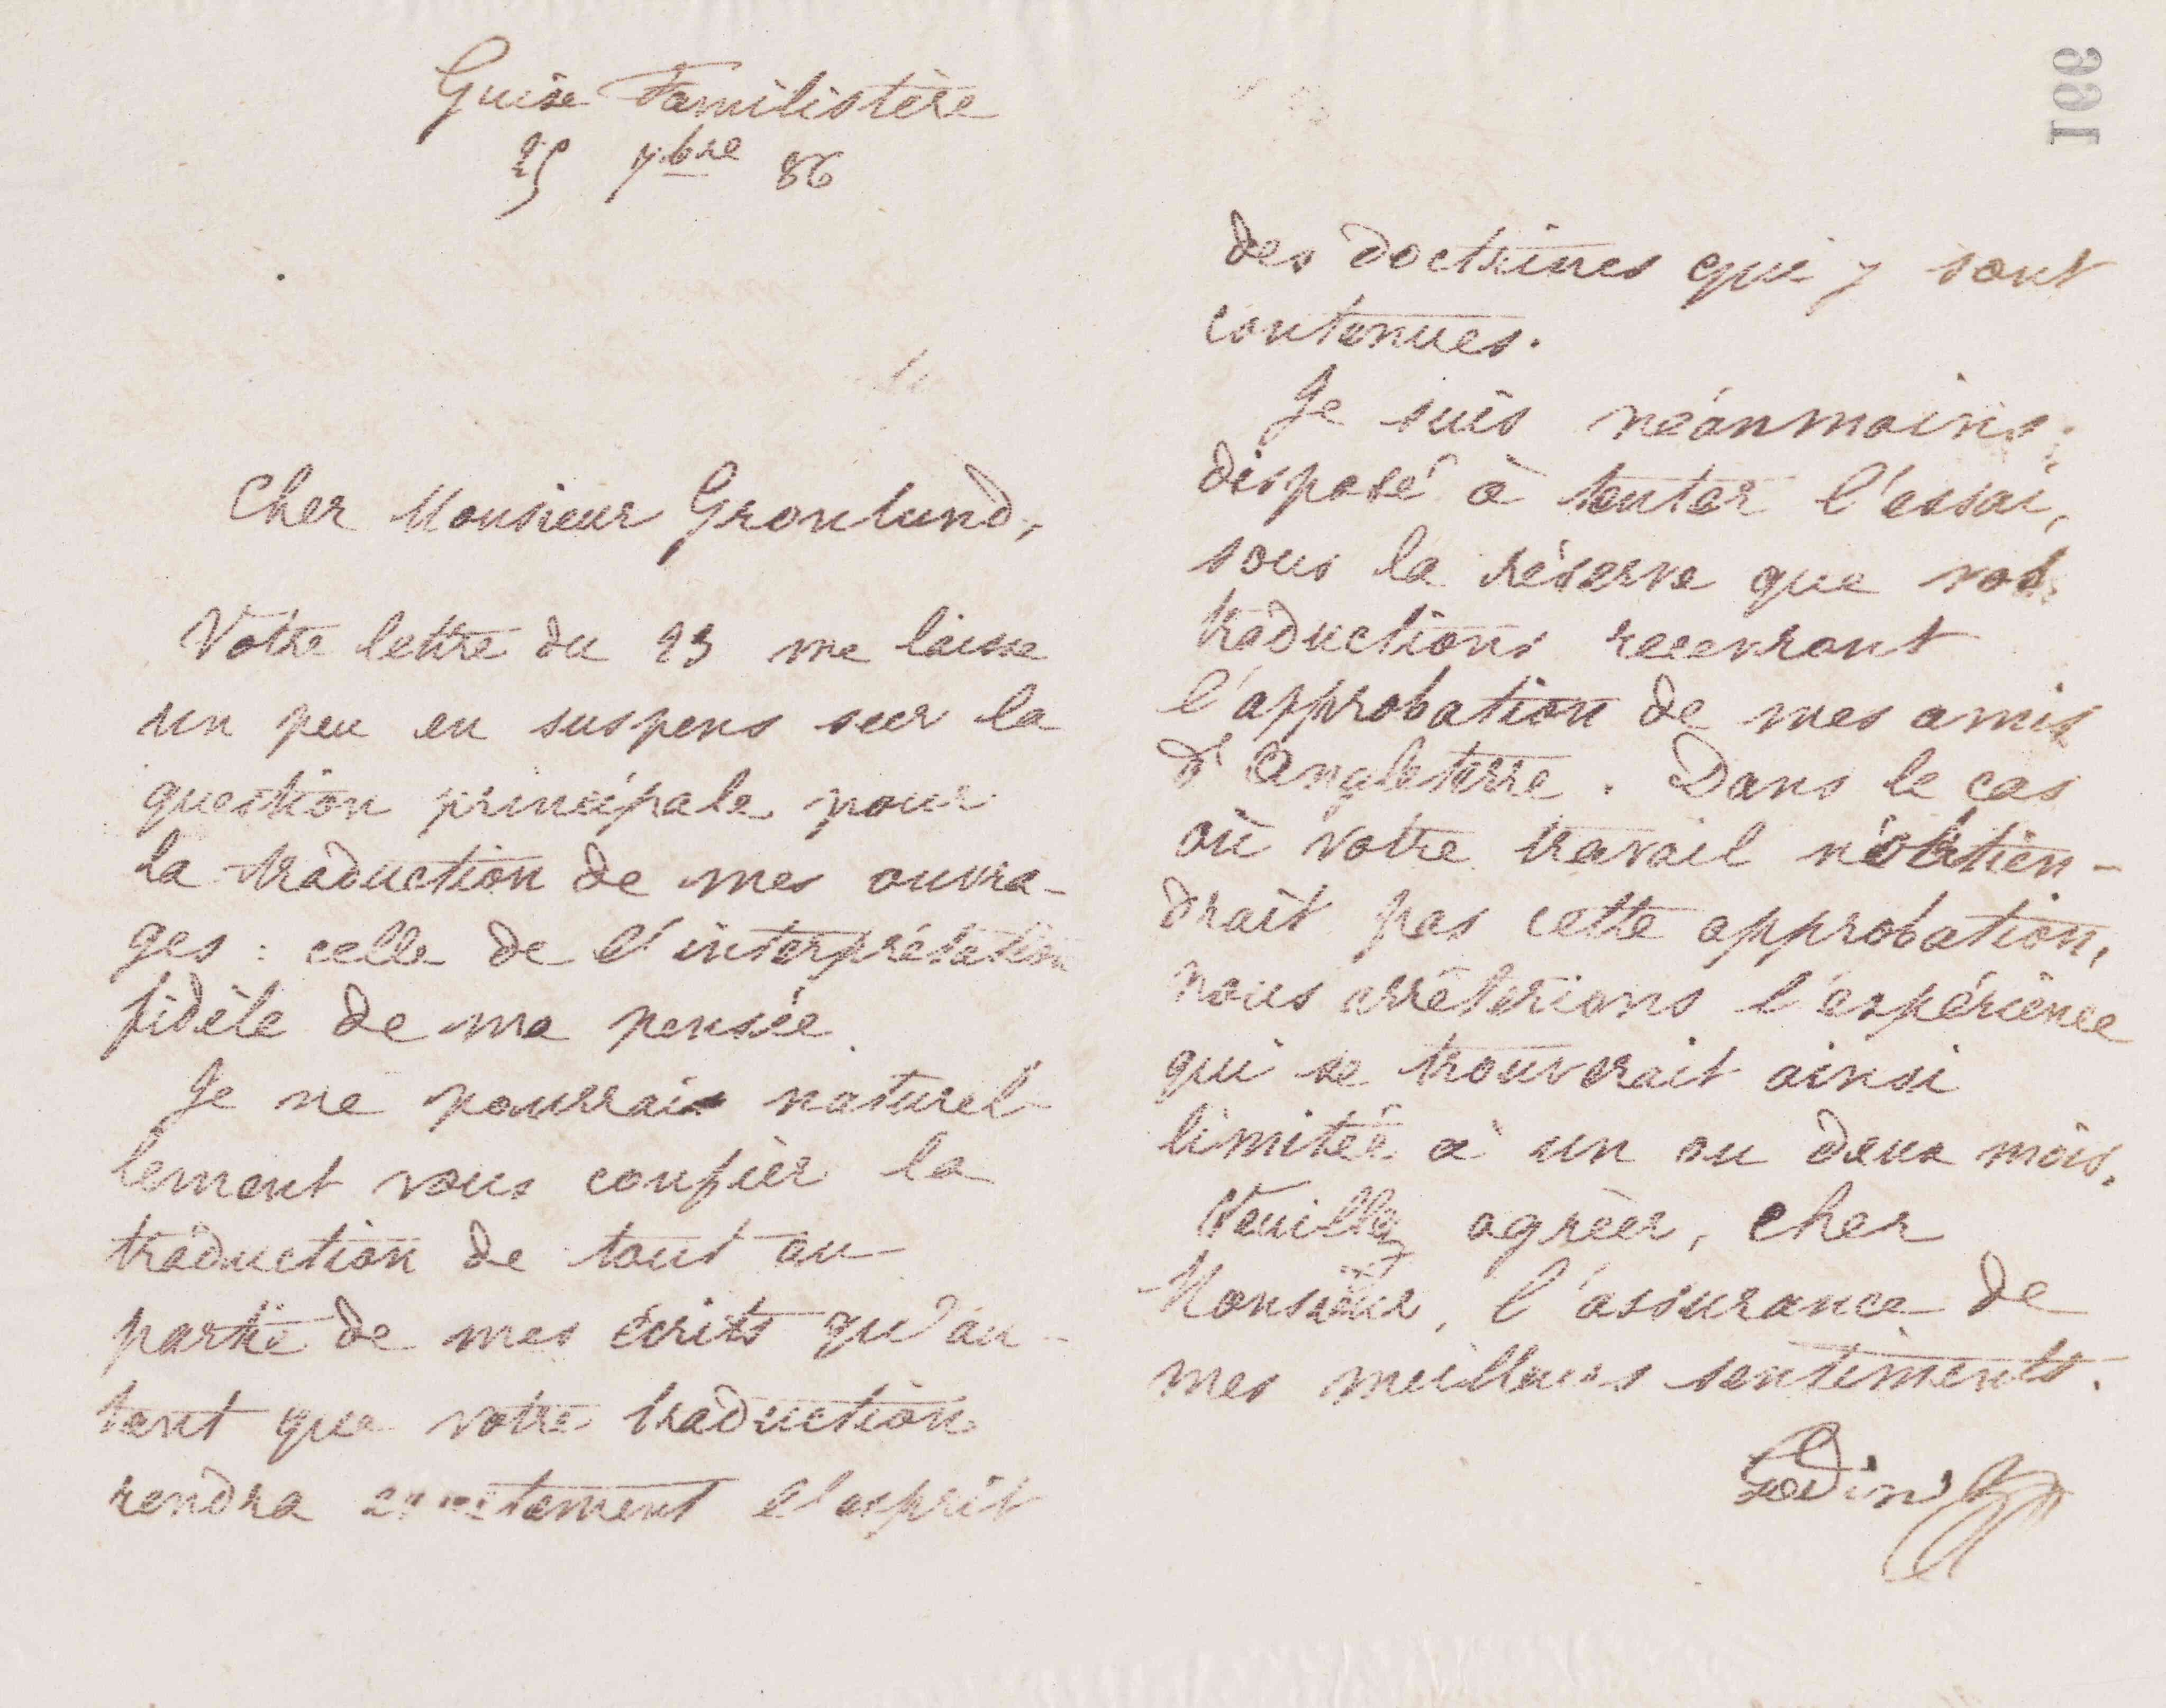 Guise Familistère
25 7bre 86
Cher Monsieur Gronlund,
Votre lettre du 23 me laisse
un peu en suspens sur la
question principale pour
la traduction de mes ouvra-
ges : celle de l'interprétation
fidèle de ma pensée.
Je ne pourrai naturel-
lement vous confier la
traduction de tout ou
partie de mes écrits qu'au-
tant que votre traduction
rendra exactement l'esprit
166
des doctrines qui y sont
contenues.
Je suis néanmoins
disposé à tenter l'essai,
sous la réserve que vos
traductions recevront
l'approbation de mes amis
d'Angleterre. Dans le cas
où votre travail n'obtien-
drait pas cette approbation,
nous arrêterions l'expérience
qui se trouverait ainsi
limitée à un ou deux mois.
Veuillez agréer, cher
Monsieur, l'assurance de
mes meilleurs sentiments.
Godin